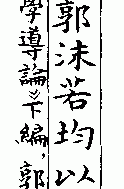 郭沫若均以
學導論》下編，郭